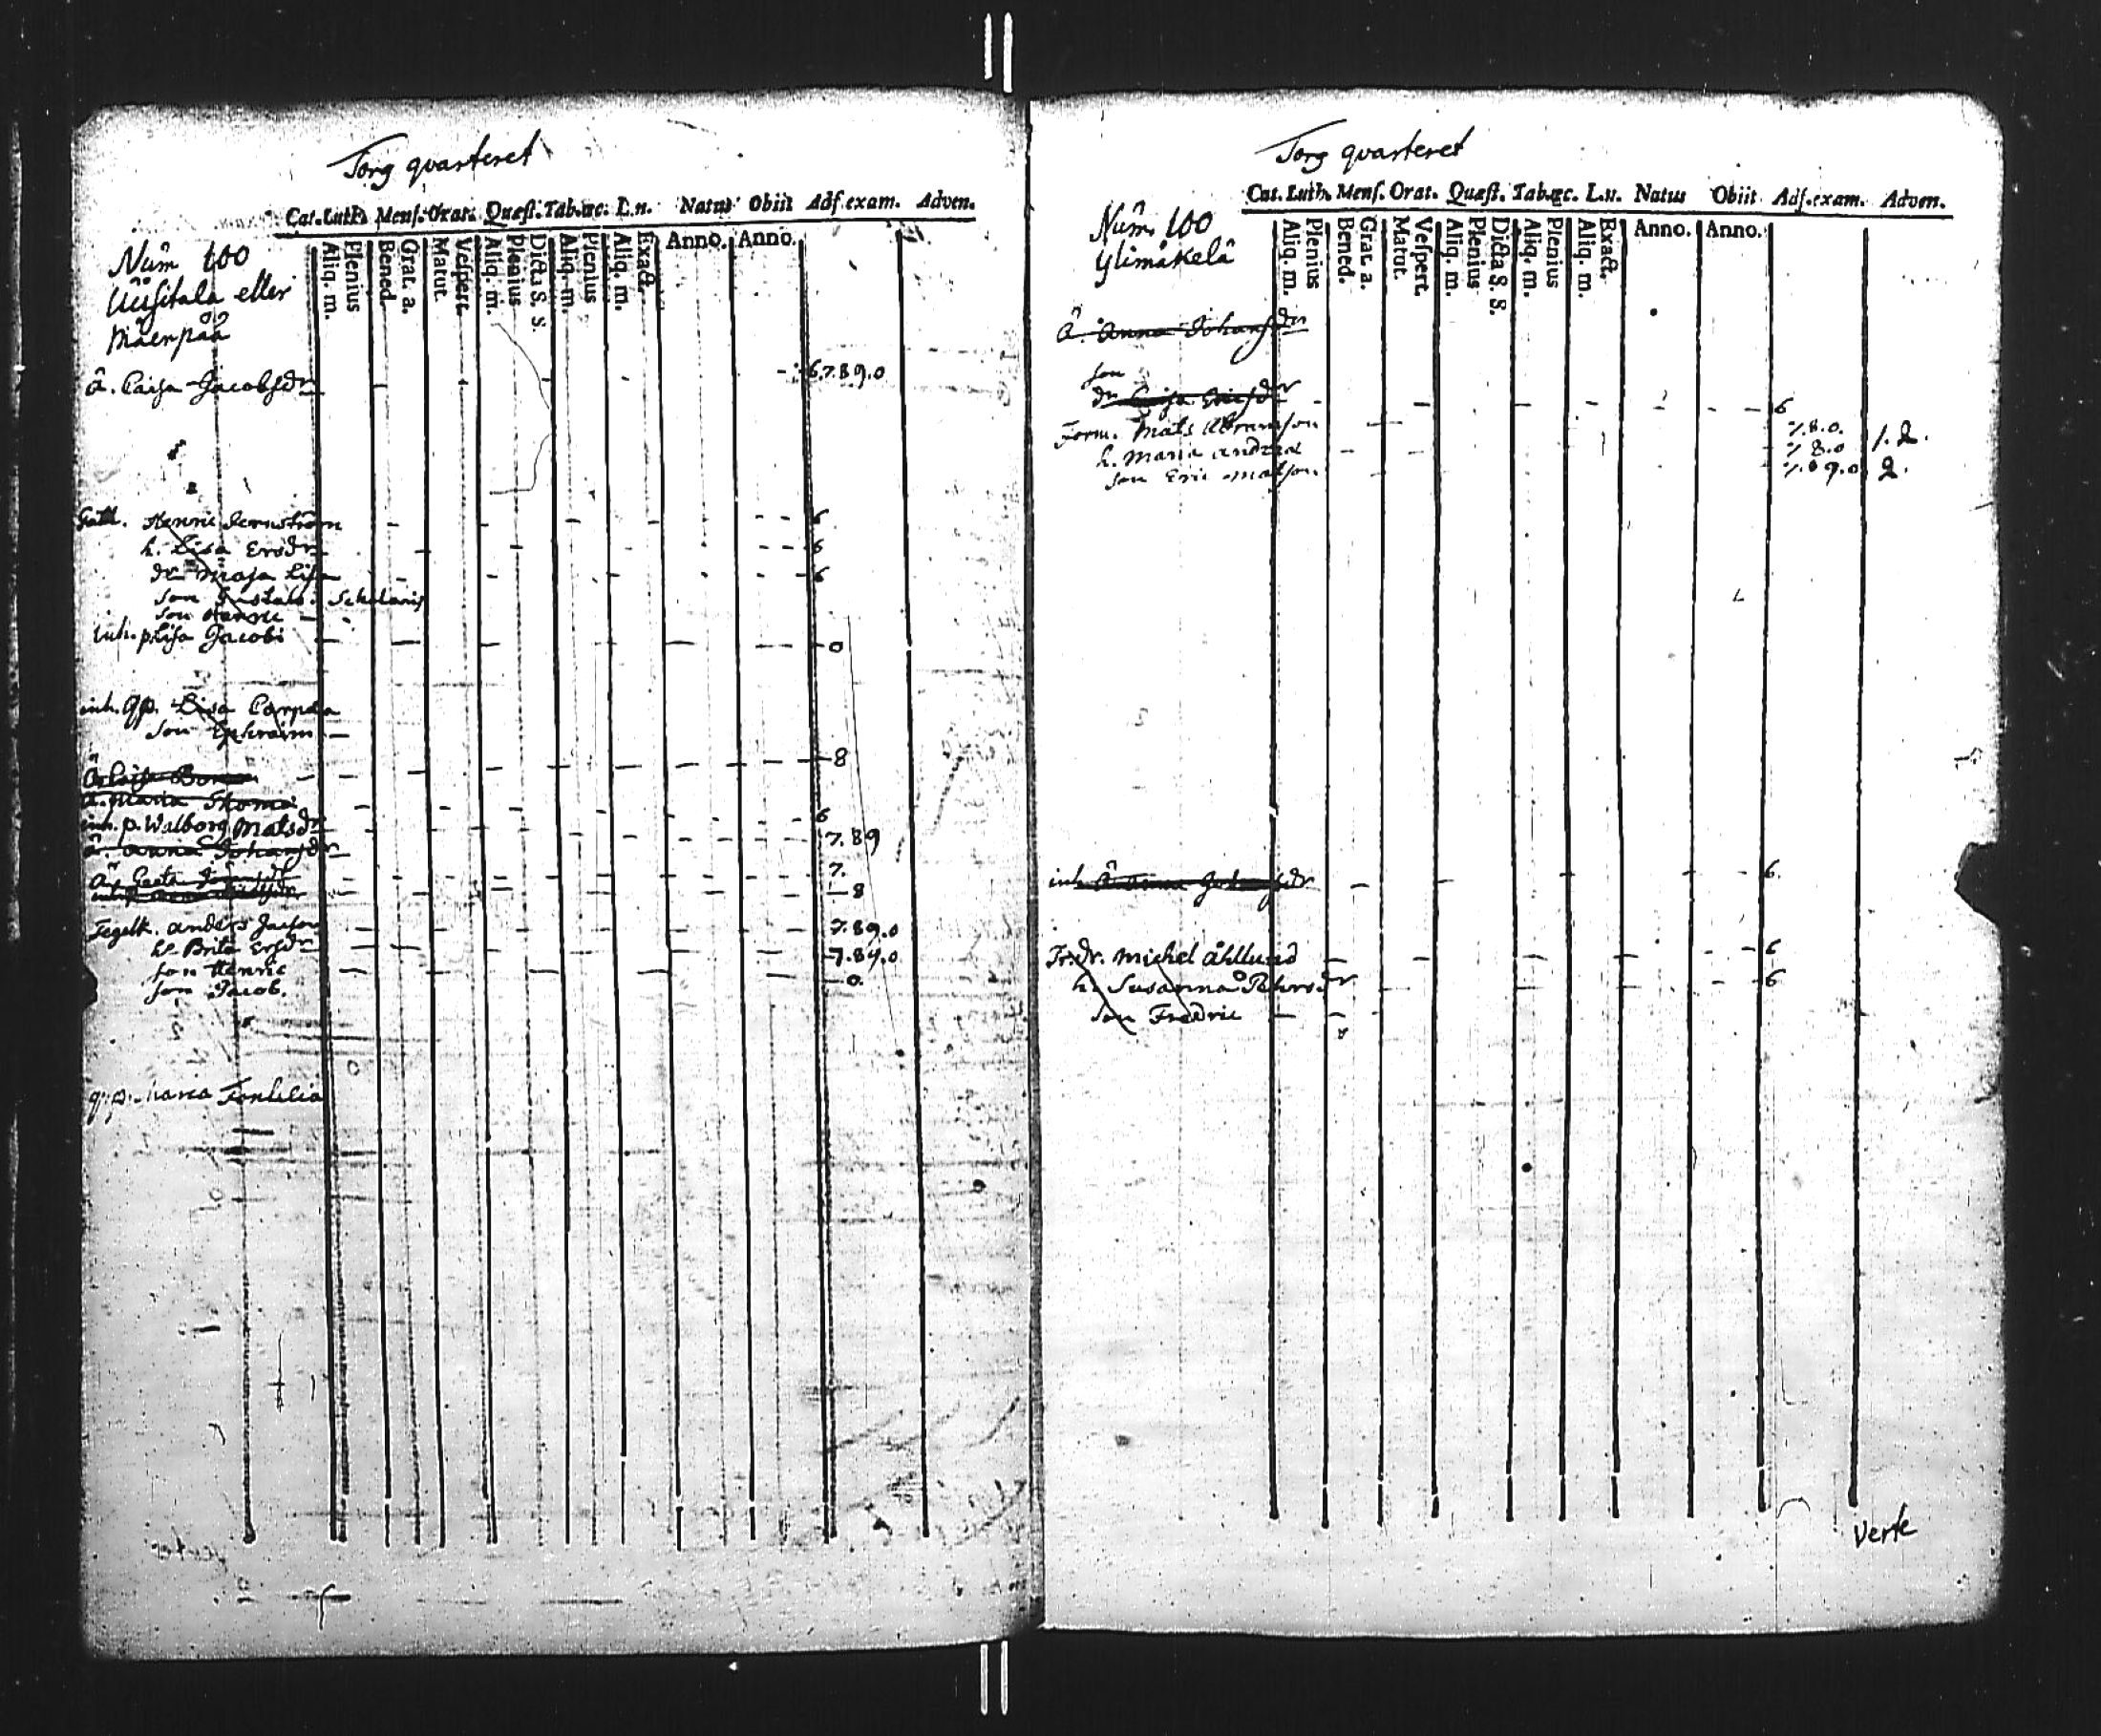 Torg quarteret
Cat. Luth. Mens. Orat. Quæst. Tab. œc. L. n. Natus Obiit Ads. exam. Adven.
Aliq. m. Plenius Bened. Grat. a. Matut. Vespert. Aliq. m. Plenius Dicta S. S. Aliq. m. Plenius Aliq. m. Exact. Anno. Anno.
Num 100
Uusitala eller
Mäenpää
Å. Caisa Jacobsdr 6.7.89.0
Henric 6
h. Lisa Ersdr 6
dr Maja Lisa 6
son Gustav. Scholaris
son Henric
inh. p. Lisa Jacobi 0
inh. qp. Lisa
son Ephraim
Å. Caisa 8
Å. Maria Thoma 6
inh. p. Walborg Matsdr 7.89
Å. Anna Johansdr 7.
Å. Greta 8
Tegelk. Anders 7.89.0
h. Brita Ersdr 7.89.0
son Henric 0
son Jacob.
q. p. Maria
Torg quarteret
Cat. Luth. Mens. Orat. Quæst. Tab. œc. L. n. Natus Obiit Ads. exam. Adven.
Aliq. m. Plenius Bened. Grat. a. Matut. Vespert. Aliq. m. Plenius Dicta S. S. Aliq. m. Plenius Aliq. m. Exact. Anno. Anno.
Num. 100
Ylimäkelä
Å. Anna Johansdr
son
dr Caisa Ericsdr 6
Form. Mats Abramson 7.8.0. 1.2.
h. Maria Andræ 7 8.0
son Eric Matson 9.0 2.
inh. Å. Anna Johansdr 6.
Fr.dr. Michel Åhllund 6
h. Susanna 6
son Fredric
Verte